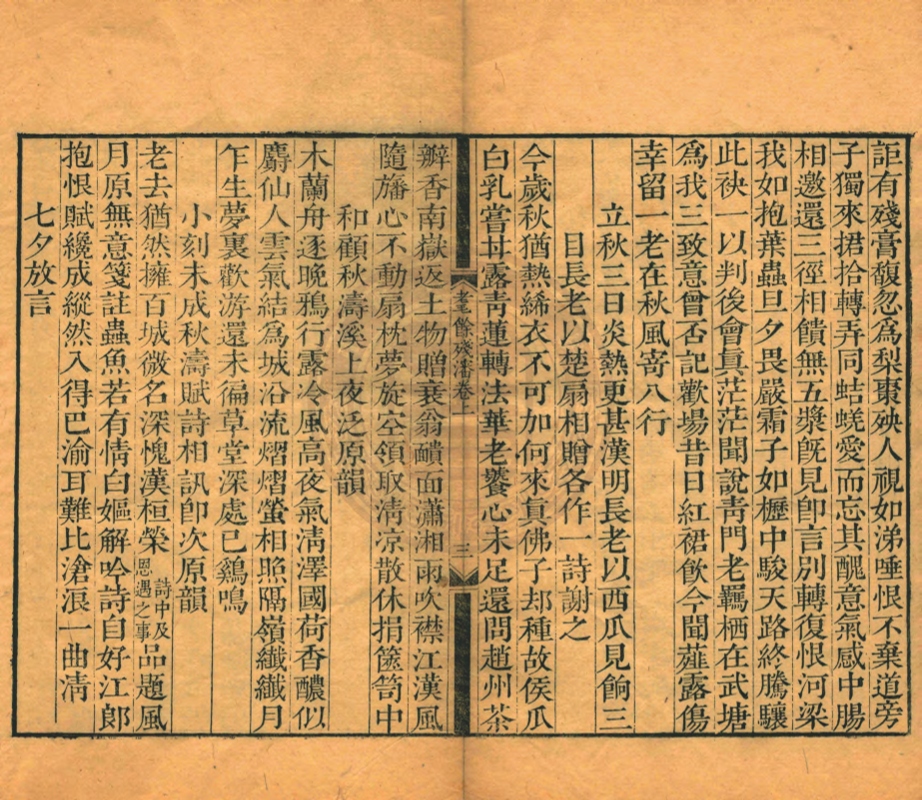 詎有殘膏馥忽爲梨棗殃人視如涕唾恨不棄道旁
子獨來捃拾轉弄同蛣蜣愛而忘其醜意氣感中腸
相邀還三徑相饋無五漿旣見卽言別轉復恨河梁
我如抱葉蟲旦夕畏嚴霜子如櫪中駿天路終騰驤
此袂一以判後會眞茫茫聞說靑門老羈栖在武塘
爲我三致意曾否記歡場昔日紅裙飮今聞薤露傷
幸留一老在秋風寄八行
立秋三日炎熱更甚漢明長老以西瓜見餉三
日長老以楚扇相贈各作一詩謝之
今歲秋猶熱絺衣不可加何來眞佛子却種故侯瓜
白乳嘗甘露靑蓮轉法華老饕心未足還問趙州茶
耄餘殘瀋卷上
三
瓣香南嶽返土物贈衰翁靧面瀟湘雨吹襟江漢風
隨旛心不動扇枕夢旋空領取淸凉散休捐篋笥中
和顧秋濤溪上夜泛原韻
木蘭舟逐晚鴉行露冷風高夜氣淸澤國荷香醲似
麝仙人雲氣結爲城沿流熠熠螢相照隔嶺纖纖月
乍生夢裏歡游還未徧草堂深處已鷄鳴
小刻未成秋濤賦詩相訊卽次原韻
老去猶然擁百城微名深愧漢桓榮詩中及恩遇之事品題風
月原無意箋註蟲魚若有情白嫗解吟詩自好江郎
抱恨賦纔成縱然入得巴渝耳難比滄浪一曲淸
七夕放言